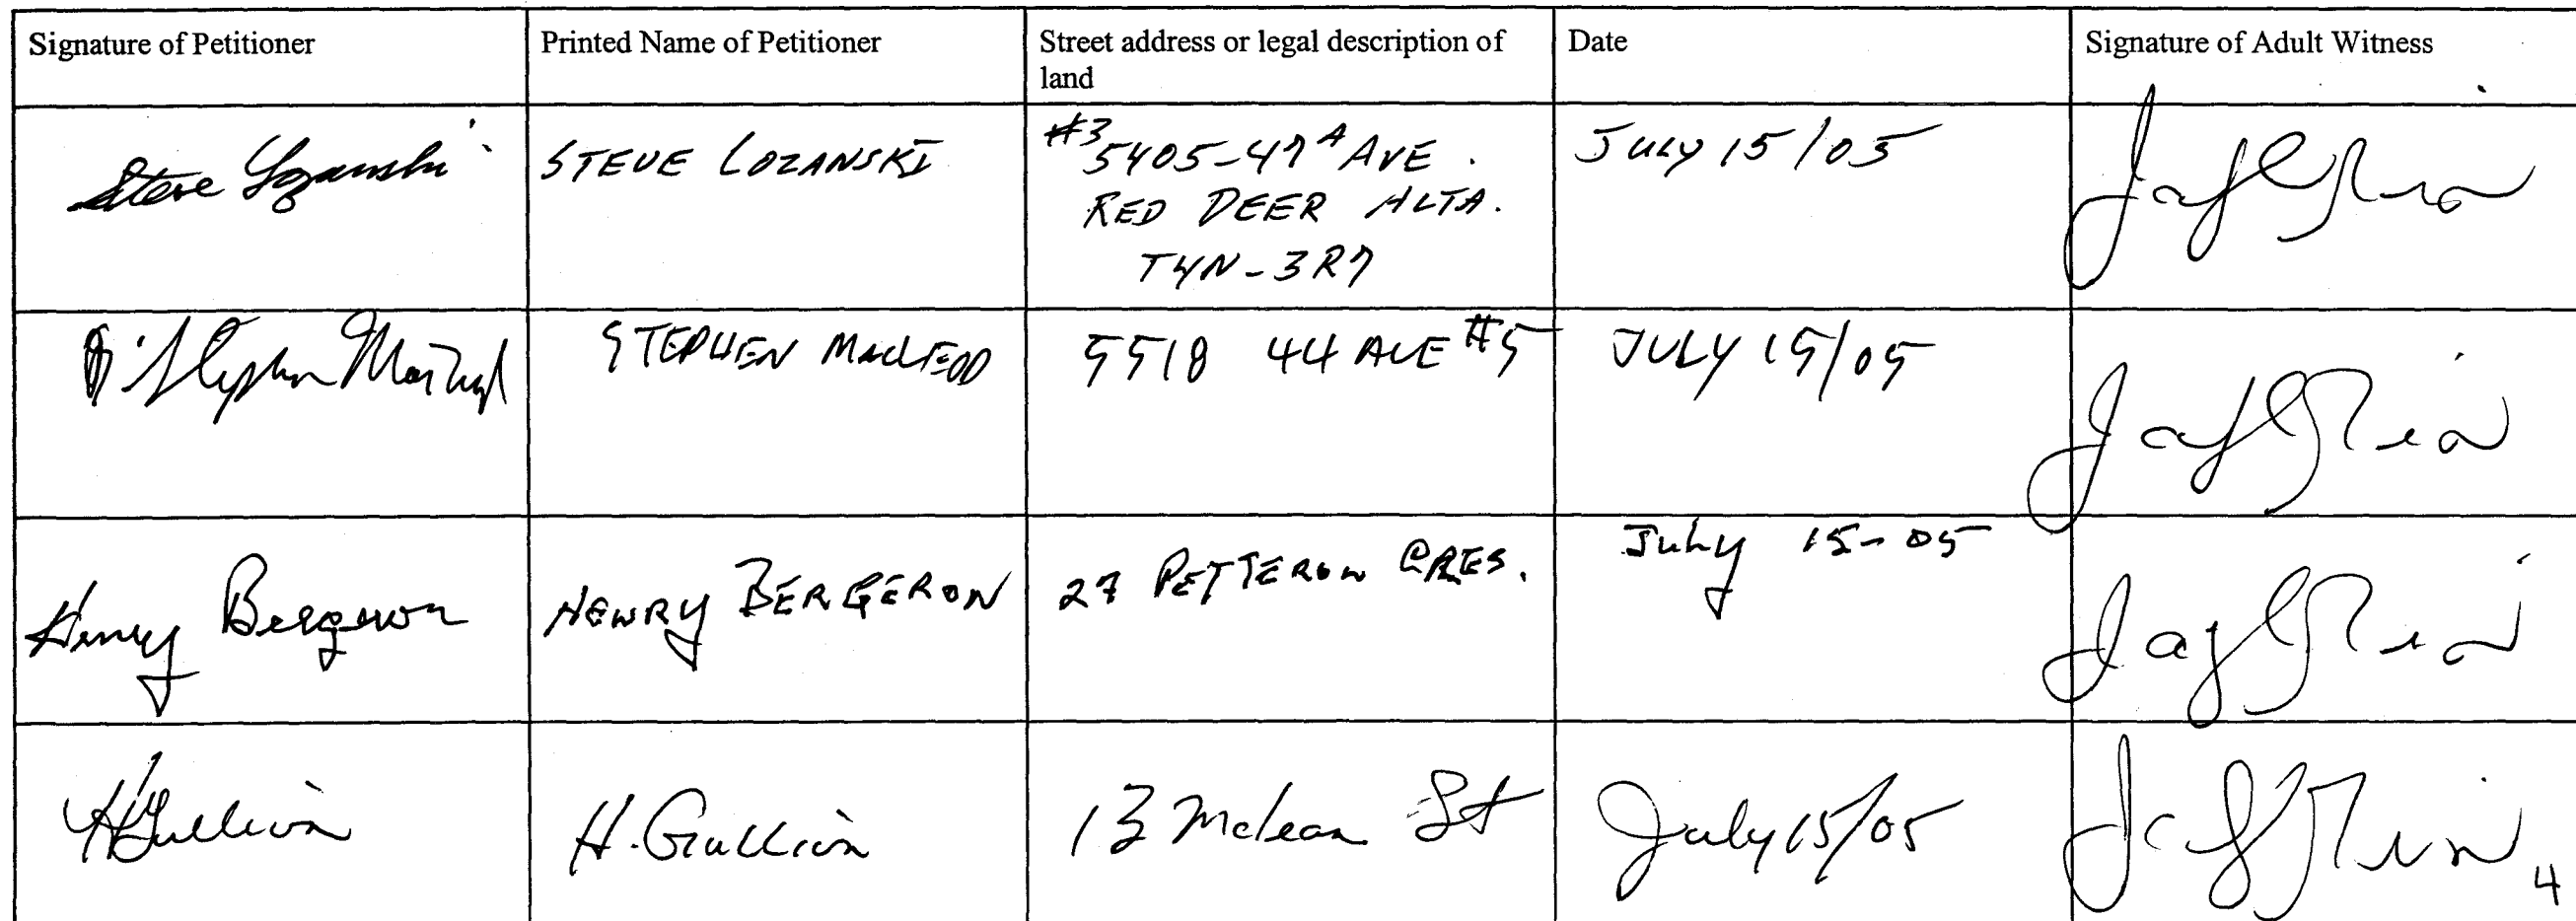 Signature of Petitioner
Printed Name of Petitioner
Street address or legal description of
land
Date
Signature of Adult Witness
Steve Lozanski
STEVE LOZANSKI
#3 5405-47A AVE.
RED DEER ALTA.
T4N-3R7
JULY 15/05
Stephen MacLeod
STEPHEN MACLEOD
5518 44 AVE #5
JULY 15/05
Henry Bergeron
HENRY BERGERON
27 PETTERON CRES.
July 15-05
H. Gullion
13 Mclean St
July 15/05
4